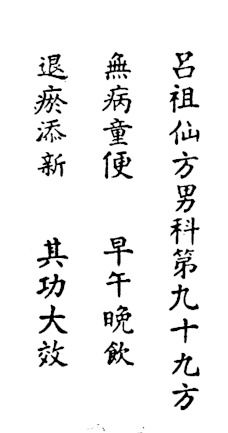 呂祖仙方男科第九十九方
無病童便　早午晚飲
退瘀添新　其功大效